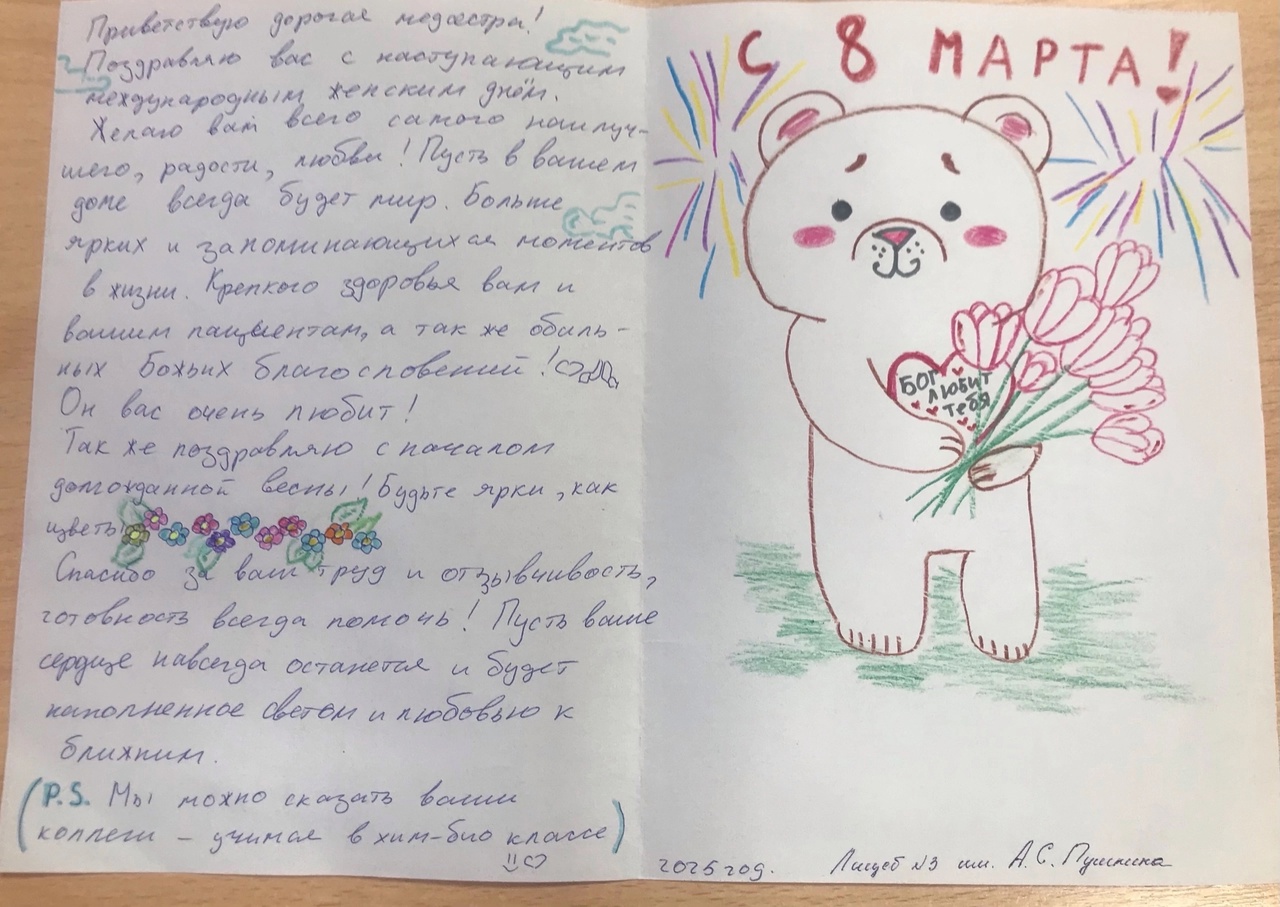 Приветствую дорогая медсестра!
Поздравляю вас с наступающим
международным женским днём.
Желаю вам всего самого наилуч-
шего, радости, любви! Пусть в вашем
доме всегда будет мир. Больше
ярких и запоминающихся моментов
в жизни. Крепкого здоровья вам и
вашим пациентам, а так же обиль-
ных Божьих благословений!
Он вас очень любит!
Так же поздравляю с началом
долгожданной весны! Будьте ярки, как
цветы
Спасибо за ваш труд и отзывчивость,
готовность всегда помочь! Пусть ваше
сердце навсегда останется и будет
наполненное светом и любовью к
ближним.
(P.S. Мы можно сказать ваши
коллеги – учимся в хим-био классе)
С 8 МАРТА!
БОГ
ЛЮБИТ
ТЕБЯ
2025 год. Лицей №3 им. А.С. Пушкина